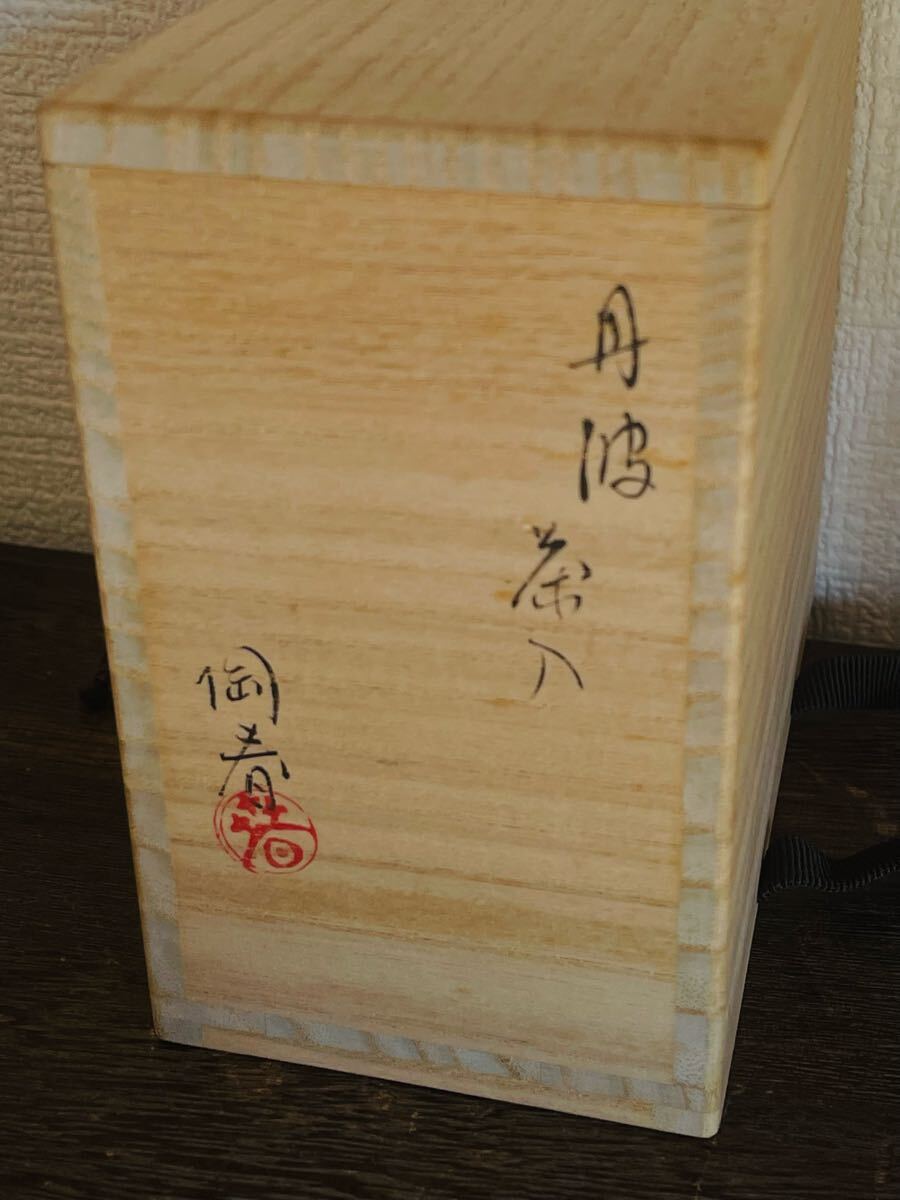 丹波
茶入
陶春
春